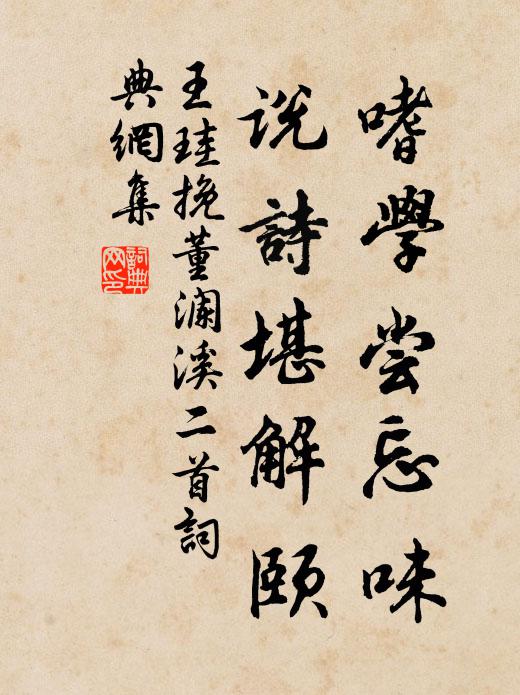 嗜學嘗忘味
説詩堪解頤
王珪挽董瀾溪二首詞
典網集
詞典
网印